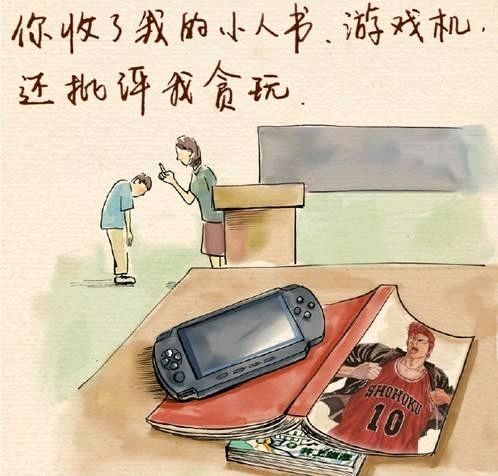 你收了我的小人书、游戏机,
还批评我贪玩.
SHOHOKU
10
井上雄彦